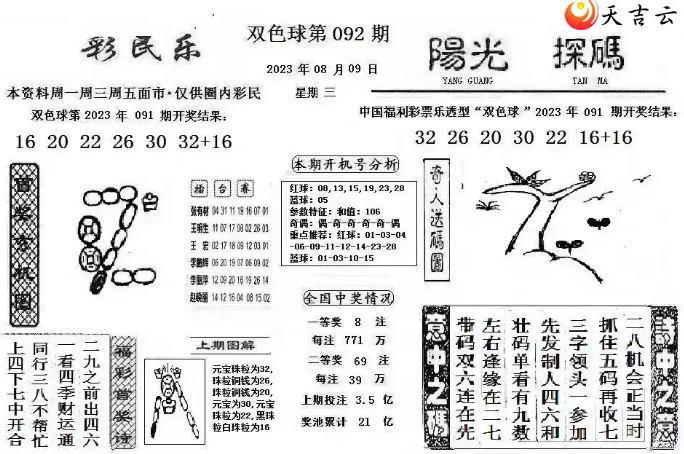 天吉云
彩民乐
双色球第092期
2023年08月09日
星期三
陽光 探碼
YANG GUANG TAN MA
本资料周一周三周五面市·仅供圈内彩民
双色球第2023年091期开奖结果:
16 20 22 26 30 32+16
中国福利彩票乐透型“双色球”2023年091期开奖结果:
32 26 20 30 22 16+16
首奖玄机图
擂台赛
张有财 04 31 11 19 16 07-01
王明生 11 07 17 08 02 26-03
王宏 02 17 18 09 12 03-01
李鹏辉 06 20 19 07 09 06-02
李丽萍 12 09 20 16 19 26-14
赵晓丽 14 12 16 04 08 15-02
本期开机号分析
红球:08,13,15,19,23,28
蓝球:05
参数特征:和值:106
奇偶:偶-奇-奇-奇-奇-偶
重点推荐:红球:01-03-04
-06-09-11-12-14-23-28
蓝球:01-03-10-15
奇人送碼圖
全国中奖情况
一等奖 8 注
每注 771 万
二等奖 69 注
每注 39 万
上期投注 3.5 亿
奖池累计 21 亿
福彩首奖诗
二九之前出四六
一看四季财运通
同行三八不帮忙
上四下七中开合
上期图解
元宝珠粒为32,
珠粒铜钱为26,
珠粒铜钱为20,
元宝为30,元宝
珠粒为22,黑珠
粒白珠粒为16
二八机会正当时
抓住五码再收七
三字领头一参加
先发制人四六和
壮码单看有九数
左右逢缘在二七
带码双六连在先
意中之推